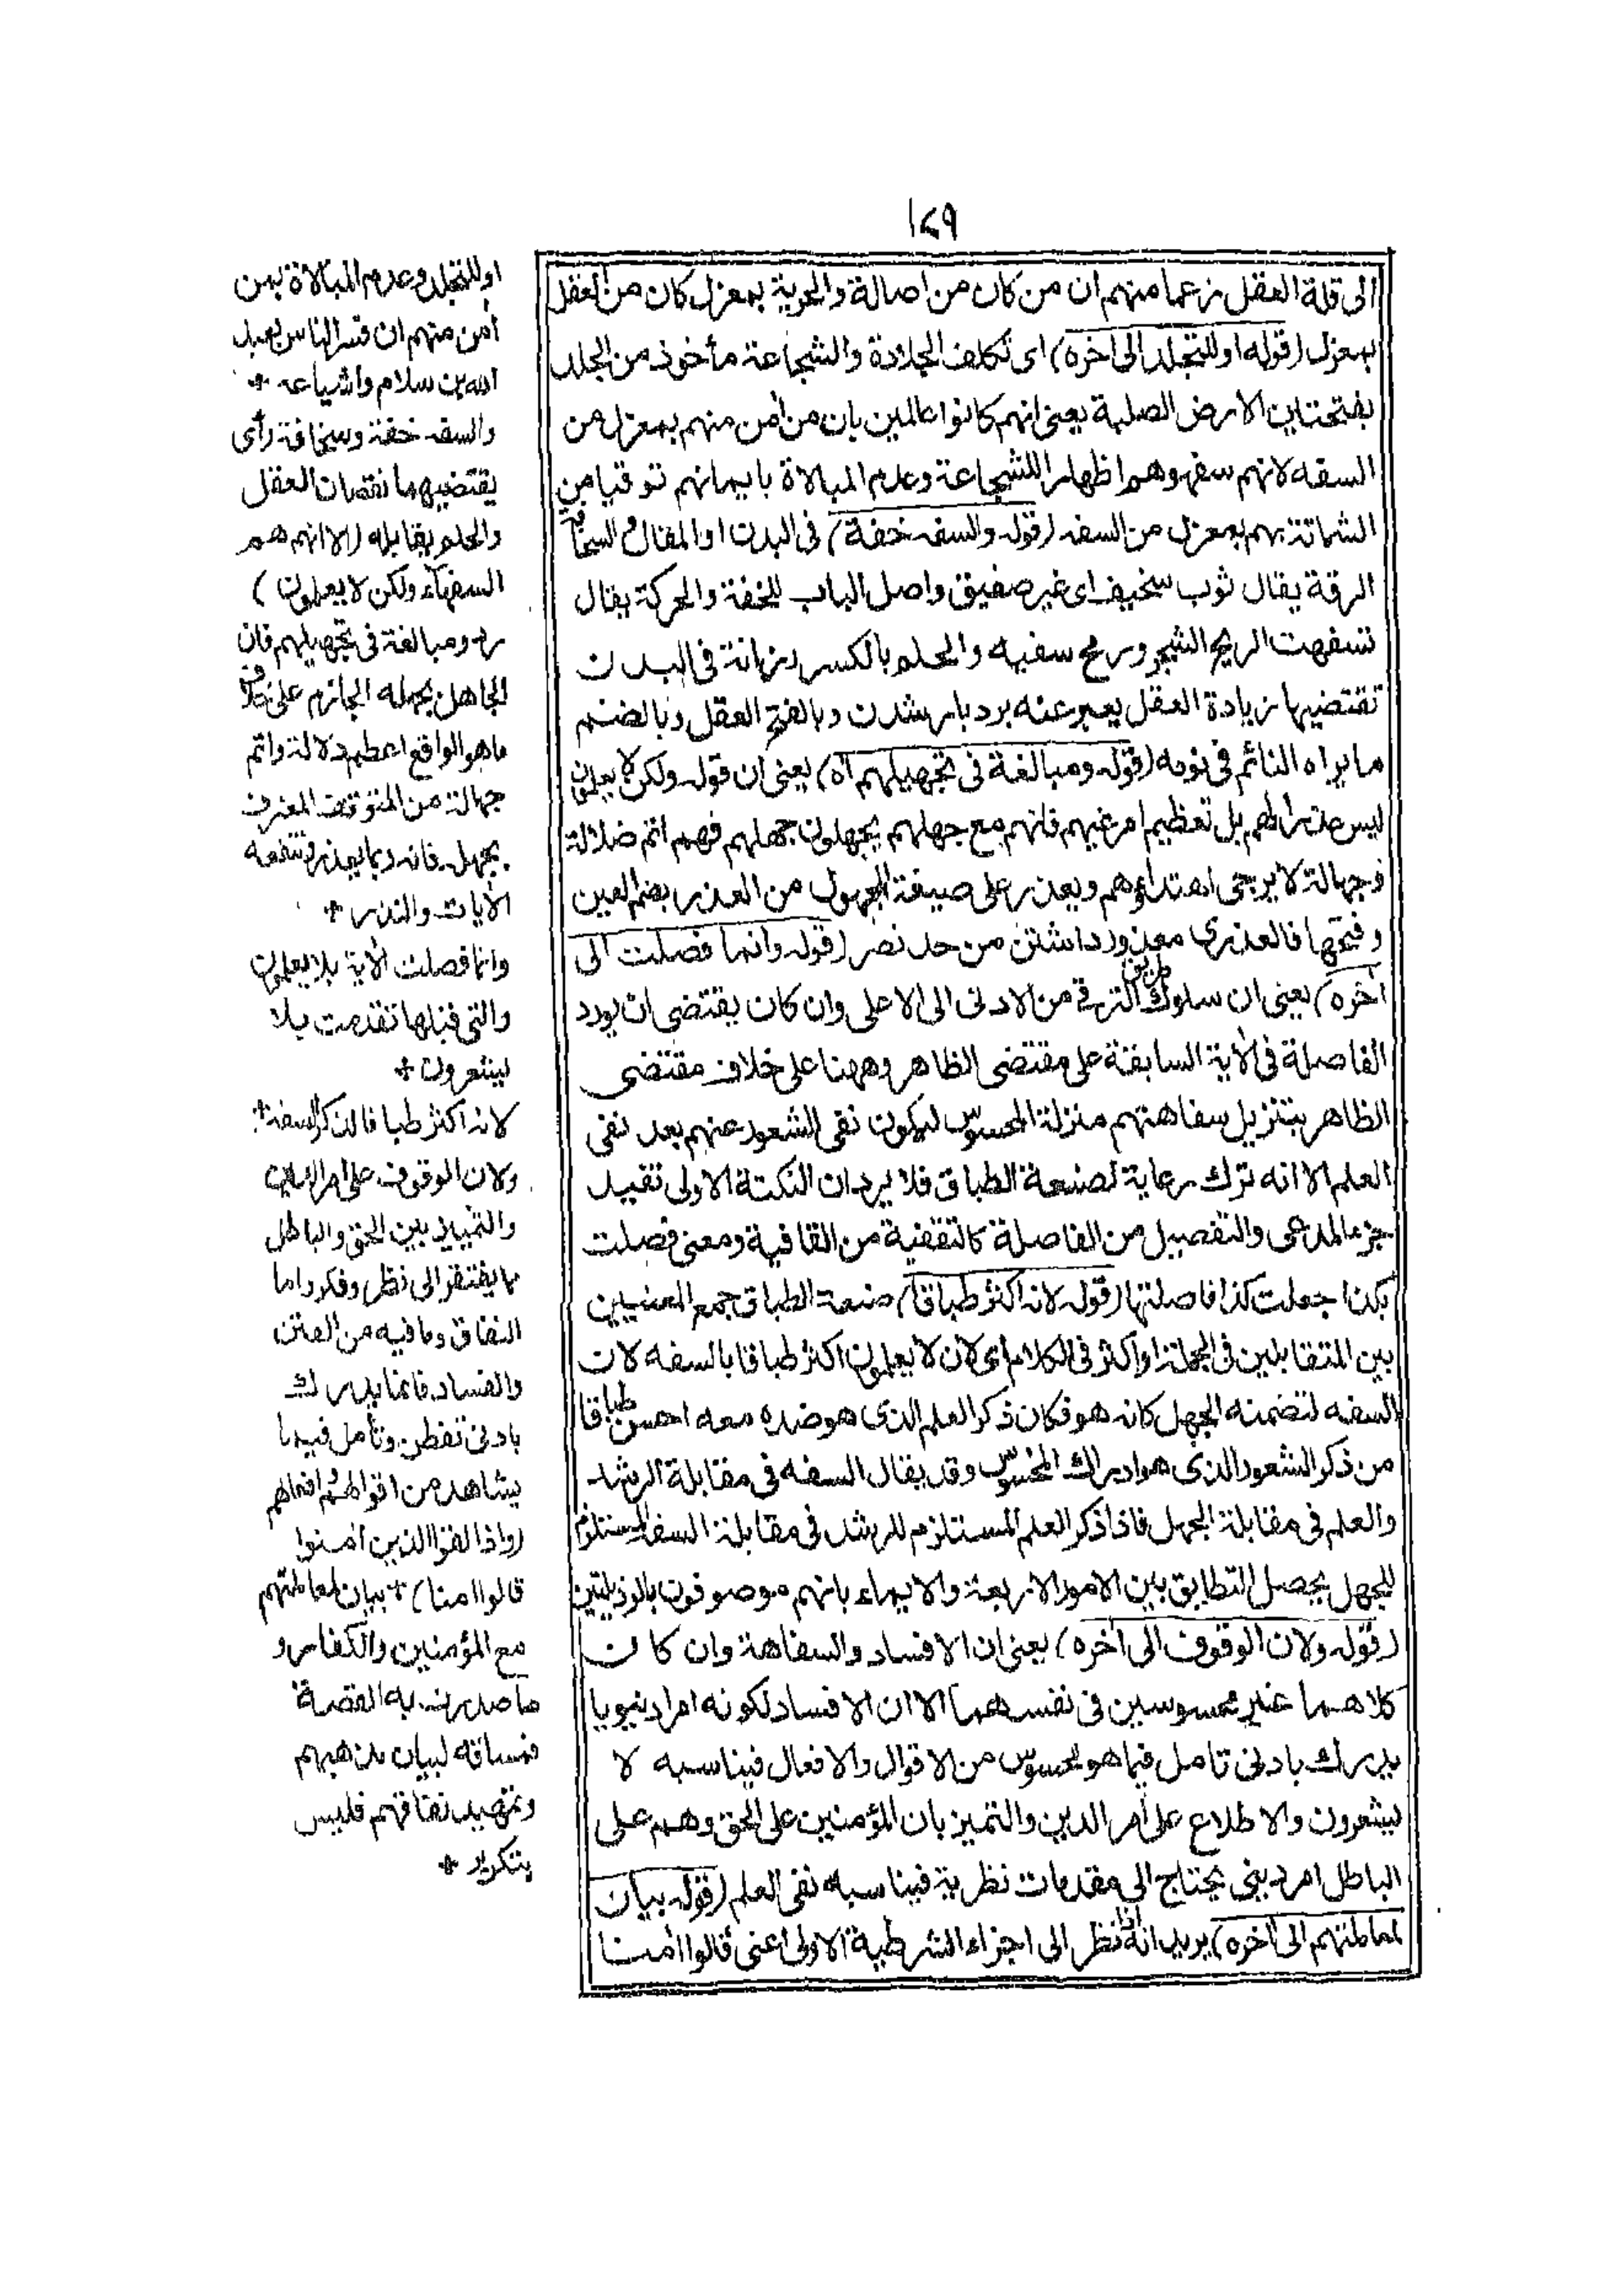 ١٤٩
الى قلة العقل زعما منهم ان من كان من اصالة والحرية بمعزل كان من العقل
بمعزل (قوله او للتجلد الى آخره) اى تكلف الجلادة والشجاعة مأخوذ من الجلد
بفتحتين الارض الصلبة يعنى انهم كانوا عالمين بان من اٰمن منهم بمعزل من
السفه لانهم سفهوهم اظهارا للشجاعة وعدم المبالاة بايمانهم توقيا من
الشماتة بهم بمعزل من السفه (قوله والسفه خفة) فى البدن او المقال و السخافة
الرقة يقال ثوب سخيف اى غير صفيق واصل الباب للخفة والحركة يقال
تسفهت الريح الشجر ورمح سفيه والحلم بالكسر رزانة فى البدن
تقتضيها زيادة العقل يعبر عنه بردبار شدن وبالفتح العقل وبالضم
ما يراه النائم فى نومه (قوله ومبالغة فى تجهيلهم آه) يعنى ان قوله ولكن لا يعلمون
ليس عذرا لهم بل تعظيم امر غيهم فانهم مع جهلهم يجهلون جهلهم فهم اتم ضلالة
وجهالة لا يرجى اهتداؤهم ويعذر على صيغة المجهول من العذر بضم العين
وفتحها فالعذرى معذور داشتن من حد نصر (قوله وانما فصلت الى
آخره) يعنى ان سلوك طريق الترقى من الادنى الى الاعلى وان كان يقتضى ان يورد
الفاصلة فى الآية السابقة على مقتضى الظاهر وههنا على خلاف مقتضى
الظاهر بتنزيل سفاهتهم منزلة المحسوس ليكون نفى الشعور عنهم بعد نفى
العلم الا انه ترك رعاية لصنعة الطباق فلا يرد ان النكتة الاولى تفيد
جزء المدعى والتفصيل من الفاصلة كالتقفية من القافية ومعنى فصلت
بكذا جعلت كذا فاصلتها (قوله لانه اكثر طباقا) صنعة الطباق جمع المعنيين
بين المتقابلين فى الجملة او اكثر فى الكلام اى لان لا يعلمون اكثر طباقا بالسفه لان
السفه لتضمنه الجهل كانه هو فكان ذكر العلم الذى هو ضده معه احسن طباقا
من ذكر الشعور الذى هو ادراك المحسوس وقد يقال السفه فى مقابلة الرشد
والعلم فى مقابلة الجهل فاذا ذكر العلم المستلزم للرشد فى مقابلة السفه المستلزم
للجهل يحصل التطابق بين الامور الاربعة والايماء بانهم موصوفون بالرذيلتين
(قوله ولان الوقوف الى آخره) يعنى ان الافساد والسفاهة وان كان
كلاهما غير محسوسين فى نفسهما الا ان الافساد لكونه امرا دنيويا
يدرك بادنى تامل فيما هو محسوس من الاقوال والافعال فيناسبه لا
يشعرون والاطلاع على امر الدين والتميز بان المؤمنين على الحق وهم على
الباطل امر دينى يحتاج الى مقدمات نظرية فيناسبه نفى العلم (قوله بيان
لمعاملتهم الى آخره) يريد انه اذا نظر الى اجزاء الشرطية الاولى اعنى قالوا اٰمنا
او للتجلد وعدم المبالاة بمن
اٰمن منهم ان فسر الناس بعبد
الله بن سلام واشياعه *
والسفه خفة وسخافة رأى
يقتضيهما نقصان العقل
والحلم يقابله (الا انهم هم
السفهاء ولكن لا يعلمون)
رد ومبالغة فى تجهيلهم فان
الجاهل بجهله الجازم على خلاف
ما هو الواقع اعظم ضلالة واتم
جهالة من المتوقف المعترف
بجهله فانه ربما يعذر وتنفعه
الاٰيات والنذر *
وانما فصلت الاٰية بلا يعلمون
والتى قبلها تقدمت بلا
يشعرون *
لانه اكثر طباقا لذكر السفه *
ولان الوقوف على امر الدين
والتمييز بين الحق والباطل
مما يفتقر الى نظر وفكر واما
النفاق وما فيه من الفتن
والفساد فانما يدرك
بادنى تفطن وتأمل فيما
يشاهد من اقوالهم وافعالهم
(واذا لقوا الذين اٰمنوا
قالوا اٰمنا) * بيان لمعاملتهم
مع المؤمنين والكفار و
ما صدرت به القصة
فمساقه لبيان مذهبهم
وتمهيد نفاقهم فليس
بتكرير *